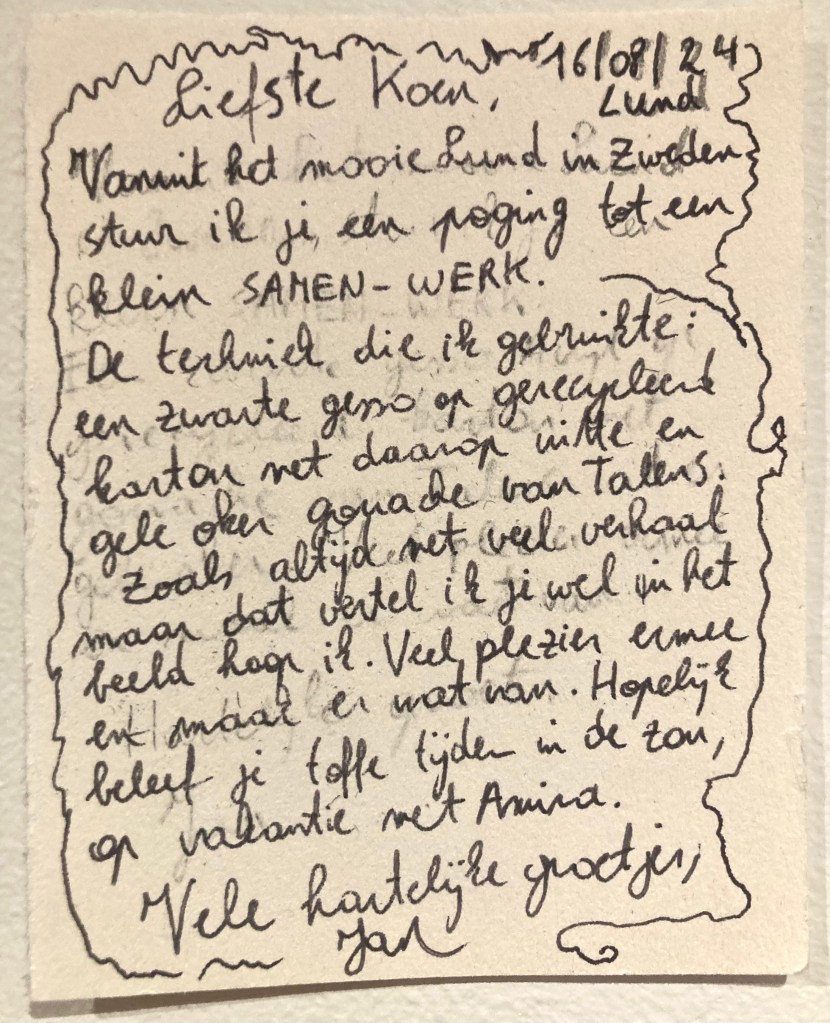 16/08/24
Liefste Koen,
Lund
Vanuit het mooie Lund in Zweden
stuur ik je een poging tot een
klein SAMEN-WERK.
De techniek die ik gebruikte:
een zwarte gesso op gerecycleerd
karton met daarop witte en
gele oker gouache van Talens.
Zoals altijd met veel verhaal
maar dat vertel ik je wel in het
beeld hoop ik. Veel plezier ermee
en maak er wat van. Hopelijk
beleef je toffe tijden in de zon,
op vakantie met Amina.
Vele hartelijke groetjes,
Jan